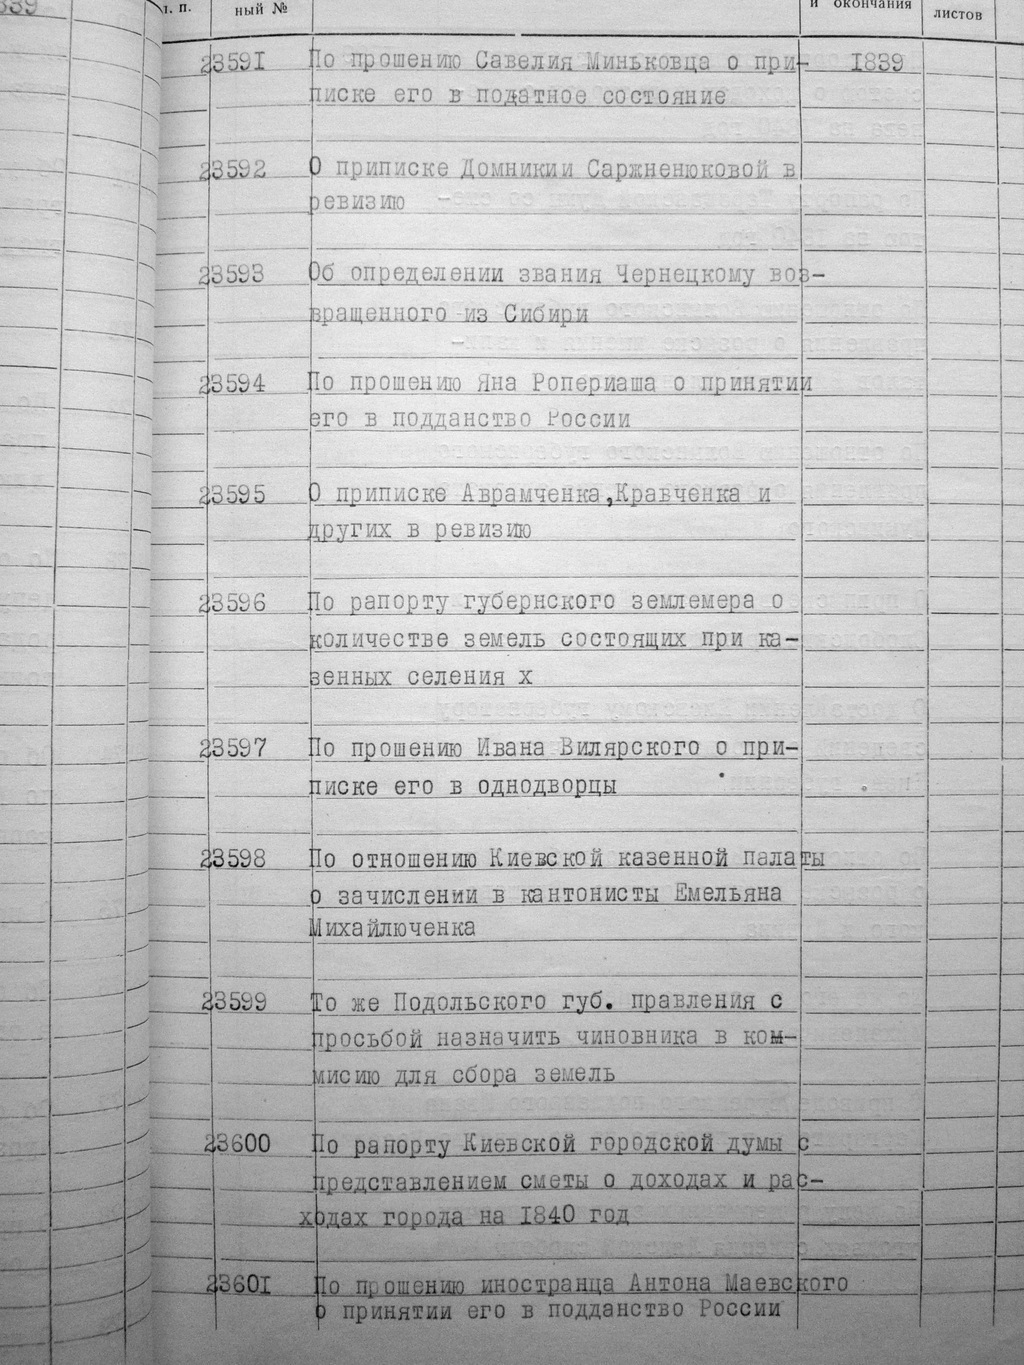 л. п. ный № и окончания листов
23591 По прошению Савелия Миньковца о при- 1839
писке его в податное состояние
23592 О приписке Домникии Саржненюковой в
ревизию
23593 Об определении звания Чернецкому воз-
вращенного из Сибири
23594 По прошению Яна Ропериаша о принятии
его в подданство России
23595 О приписке Аврамченка,Кравченка и
других в ревизию
23596 По рапорту губернского землемера о
количестве земель состоящих при ка-
зенных селения х
23597 По прошению Ивана Вилярского о при-
писке его в однодворцы
23598 По отношению Киевской казенной палаты
о зачислении в кантонисты Емельяна
Михайлюченка
23599 То же Подольского губ. правления с
просьбой назначить чиновника в ком-
мисию для сбора земель
23600 По рапорту Киевской городской думы с
представлением сметы о доходах и рас-
ходах города на 1840 год
23601 По прошению иностранца Антона Маевского
о принятии его в подданство России